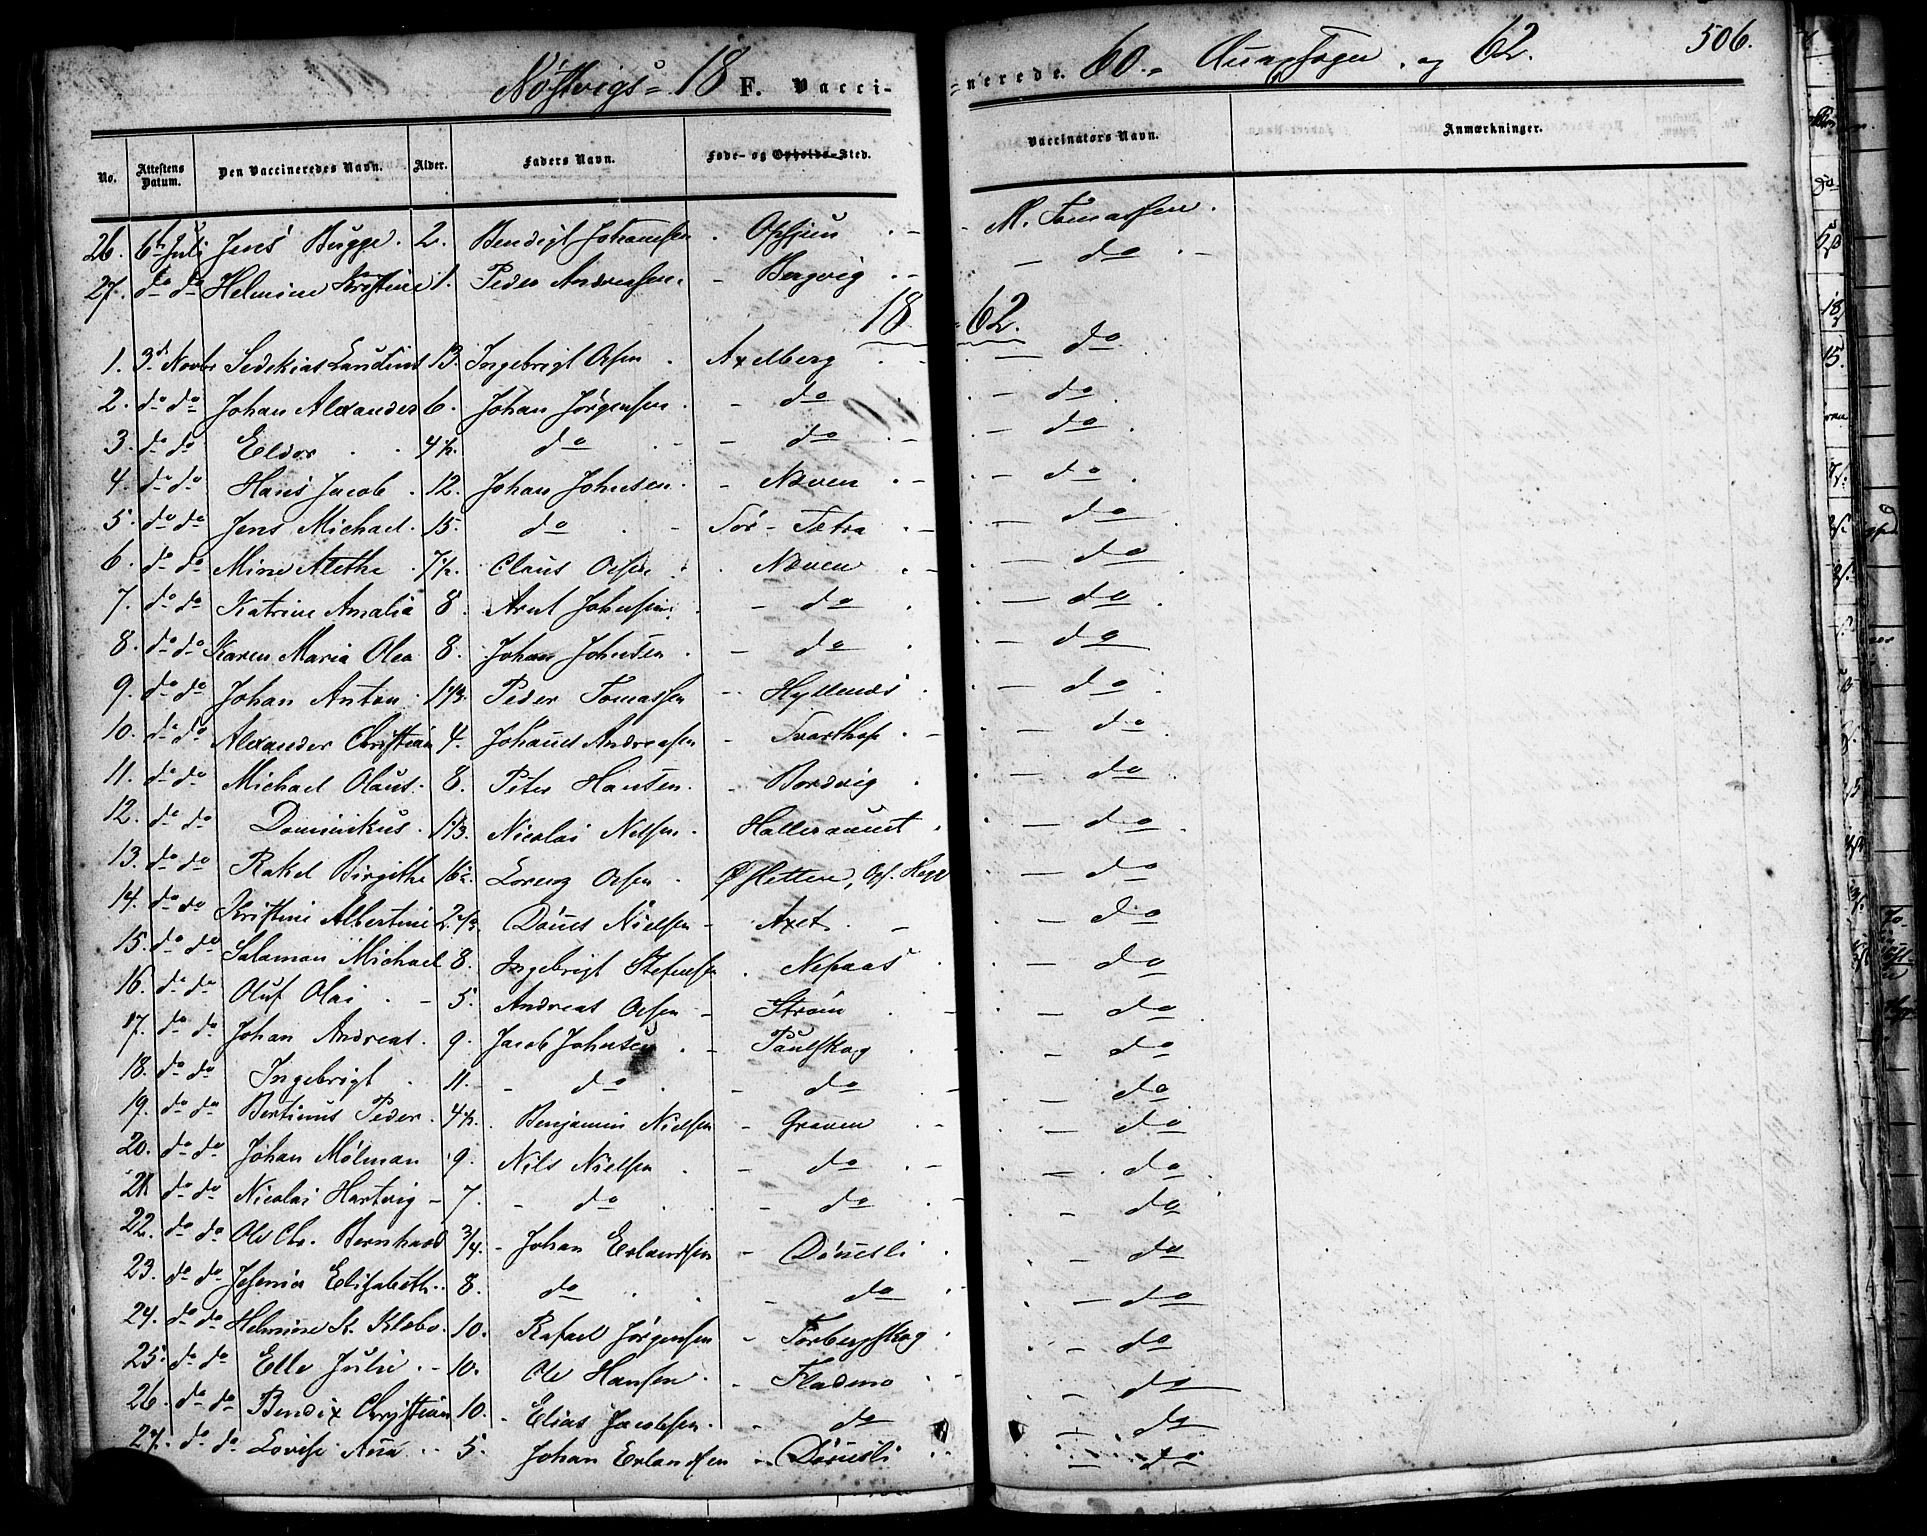 Nøstvigs 18 F. Vacci-
=nerede. 60. Annexsogn. og 62. 506.
No. Attestens Datum. Den Vaccineredes Navn. Alder. Faders Navn. Føde- og Opholds-Sted. Vaccinators Navn. Anmærkninger.
26. 6te Juli Jens Bugge. 2. Bendigt Johansen. Opsjøen M. Tomassen.
27. do do Helmine Kristine 1. Peder Andreassen. Bergvig do
18 62.
1. 3d Novbr Sedekias 13. Ingebrigt Olsen. Axelberg do
2. do do Johan Alexander 6. Johan Jørgensen. do do
3. do do Eldor 4½. do do do
4. do do Hans Jacob. 12. Johan Johnsen. Næven do
5. do do Jens Michael. 15. do Sør-Tætra do
6. do do Mine Alethe. 7½. Claus Olsen Næven do
7. do do Katrine Amalia 8. Arnt Johnsen. do do
8. do do Karen Maria Olea 8. Johan Johnsen. do do
9. do do Johan Anton. 1 1/3. Peder Tomassen Hyllenæs do
10. do do Alexander Christian 4. Johanes Andreasen Svarthop do
11. do do Michael Olaus. 8. Peter Hansen. Bordvig do
12. do do Dominikus. 1 1/3. Nicolai Nilsen. do
13. do do Rakel Birgithe 16. Lorenz Olsen. do
14. do do Kristine Albertine 2 Dønes Nielsen Axet. do
15. do do Salamon Michael 8. Ingebrigt Stefensen. Nepaas do
16. do do Oluf Olai 5. Andreas Olsen Strøm do
17. do do Johan Andreas. 9. Jacob Johnsen. Paulskog do
18. do do Ingebrigt 11. do do do
19. do do Bertinus Peder. 4½. Benjamin Nielsen Graven do
20. do do Johan Mølman 9. Nils Nielsen do do
21 do do Nicolai Hartvig 7. do do do
22. do do Ole Chr. Bernhard 3/4. Johan Erlandsen Dønesli do
23. do do Jesenia Elisabeth. 8. do do do
24. do do Helmine K. Klæbo. 10. Rafael Jørgensen Torbergskog do
25. do do Elle Julie 10. Ole Hansen. Flademo do
26. do do Bendix Christian 10. Elias Jacobsen. do do
27. do do Lovise Ana 5. Johan Erlandsen Dønesli do